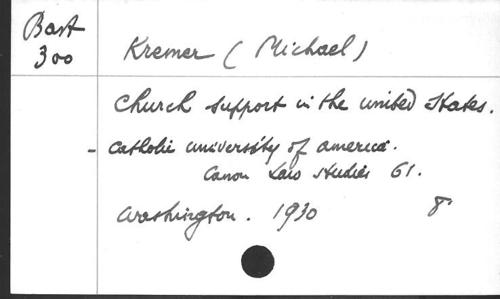 Bast
300
Kremer (Michael)
Church support in the united States.
- Catholic university of america.
Canon Law studies 61.
Washington. 1930 8°